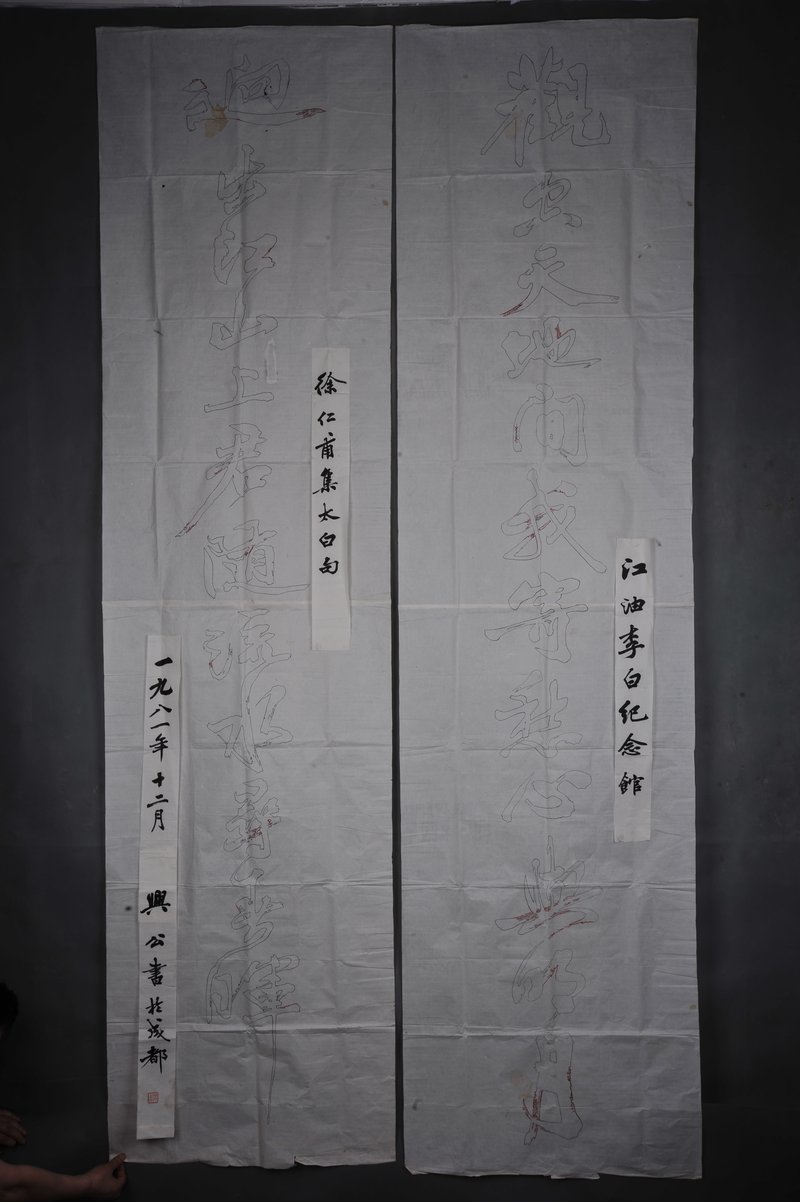 觀空天地間我寄愁心與明月
江油李白紀念館
迥出江山上君隨流水
徐仁甫集太白句
一九八一年十二月 興公書於成都